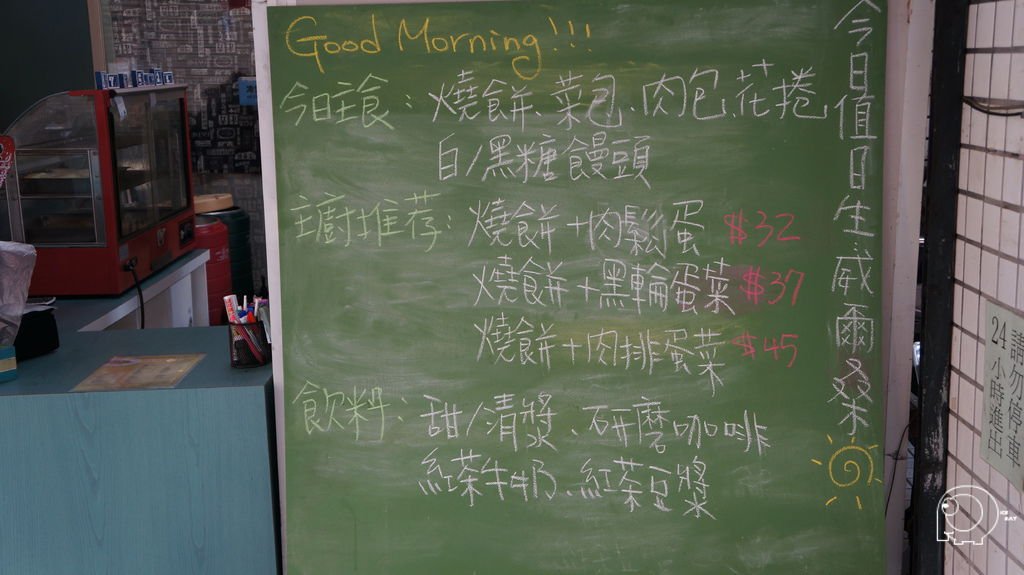 Good Morning!!!
今日主食：燒餅、菜包、肉包、花捲
白/黑糖饅頭
主廚推荐：燒餅+肉鬆蛋 $32
燒餅+黑輪蛋菜 $37
燒餅+肉排蛋菜 $45
飲料：甜/清漿、研磨咖啡
紅茶牛奶、紅茶豆漿
今日值日生威爾叒木
請勿停車
24小時進出